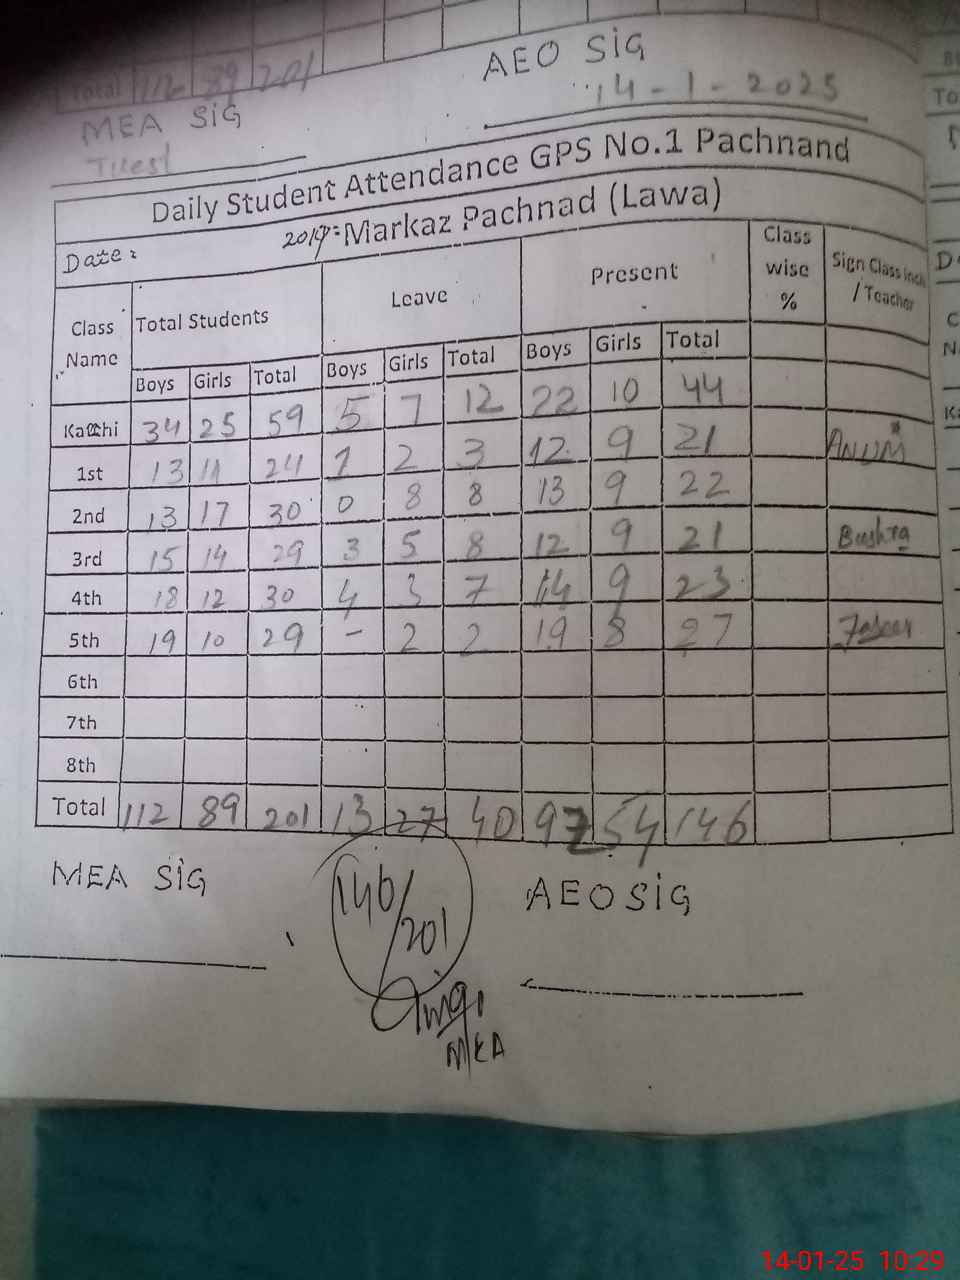 Total 112 89 201
AEO SiG
14-1-2025
MEA SiG
Daily Student Attendance GPS No.1 Pachnand
Markaz Pachnad (Lawa)
Date:
Class Name Total Students Leave Present Class wise % / Teacher
Boys Girls Total Boys Girls Total Boys Girls Total
Katchi 34 25 59 5 7 12 22 10 44
1st 13 11 24 1 2 3 12 9 21 ANUM
2nd 13 17 30 0 8 8 13 9 22
3rd 15 14 29 3 5 8 12 9 21 Bushra
4th 18 12 30 4 3 7 14 9 23
5th 19 10 29 - 2 2 19 8 27
6th
7th
8th
Total 112 89 201 13 27 40 97 54 146
MEA SiG
146/201
AEO SiG
MEA
14-01-25 10:29